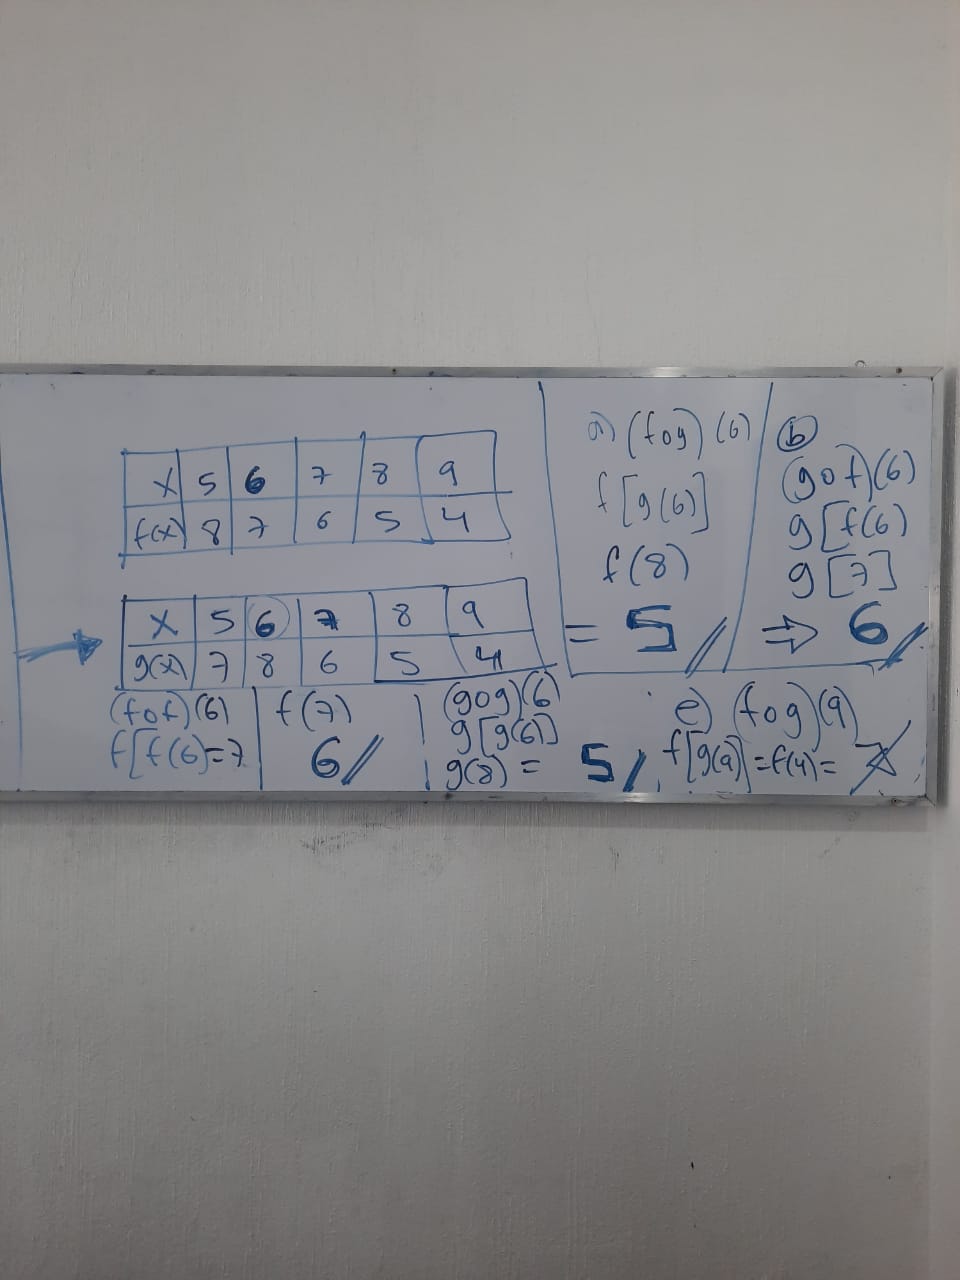 x 5 6 7 8 9
f(x) 8 7 6 5 4
x 5 6 7 8 9
g(x) 7 8 6 5 4
a) (fog) (6)
f[g(6)]
f(8)
= 5 //
b
(gof)(6)
g[f(6)
g[7]
⇒ 6 //
(fof)(6)
f[f(6)=7
f(7)
6//
(gog)(6)
g[g(6)]
g(8) = 5//
e) (fog)(9)
f[g(9)]=f(4)=